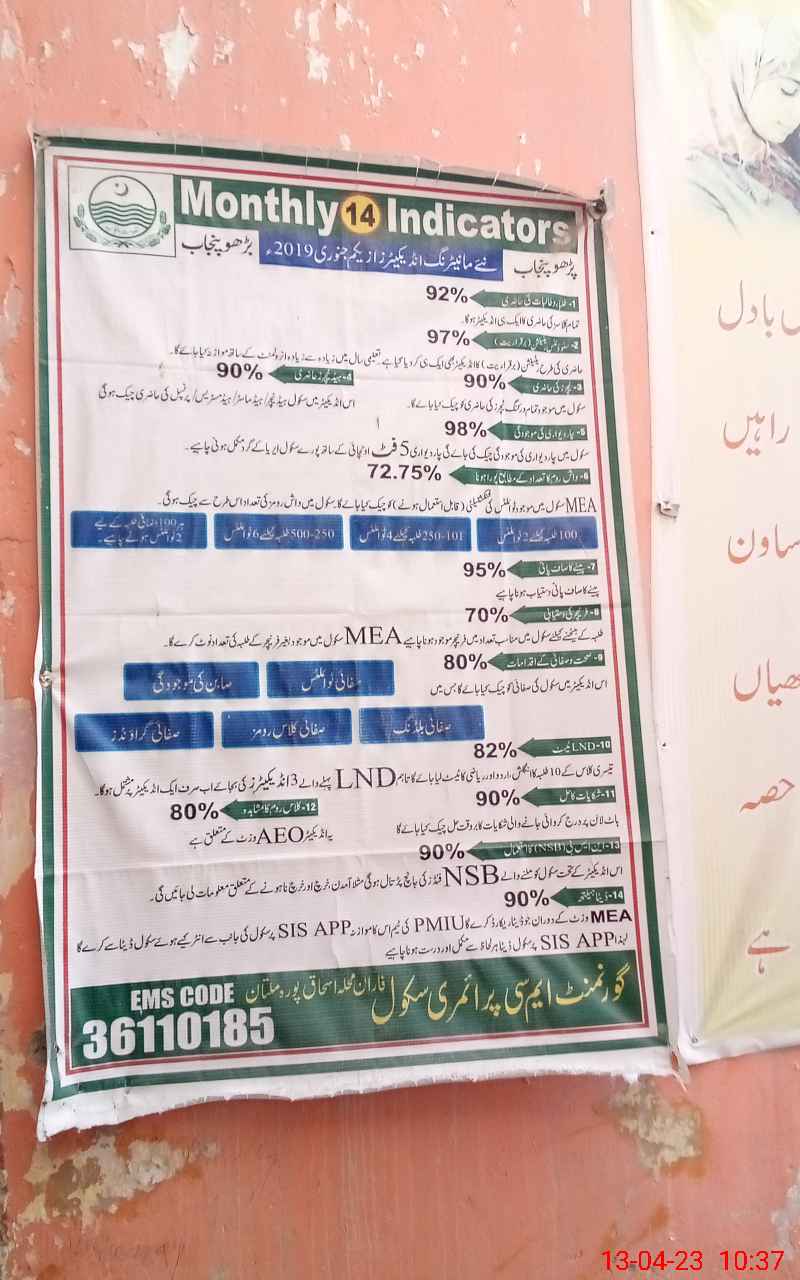 Monthly 14 Indicators
پڑھو پنجاب بڑھو پنجاب
نئے مانیٹرنگ انڈیکیٹرز از یکم جنوری 2019ء
1- طلباء و طالبات کی حاضری 92%
تمام کلاسز کی حاضری کا ایک ہی انڈیکیٹر ہوگا۔
97%
حاضری کی طرح ریٹینشن (برقراریت) کا انڈیکیٹر بھی ایک ہی کر دیا گیا ہے۔ تعلیمی سال میں زیادہ سے زیادہ انرولمنٹ کے ساتھ موازنہ کیا جائے گا۔
3- ٹیچرز کی حاضری 90%
سکول میں موجود تمام ورکنگ ٹیچرز کی حاضری کو چیک کیا جائے گا۔
4- ہیڈ ٹیچرز حاضری 90%
اس انڈیکیٹر میں سکول ہیڈ ٹیچر/ ہیڈ ماسٹر/ ہیڈ مسٹریس/ پرنسپل کی حاضری چیک ہوگی
5- چار دیواری کی موجودگی 98%
سکول میں چار دیواری کی موجودگی چیک کی جائے گی چار دیواری 5 فٹ اونچائی کے ساتھ پورے سکول ایریا کے گرد مکمل ہونی چاہیے۔
6- واش روم کا تعداد کے مطابق پورا ہونا 72.75%
MEA سکول میں موجود ٹوائلٹس کی فنکشنیلٹی (قابل استعمال ہونے) کو چیک کیا جائے گا۔ سکول میں واش رومز کی تعداد اس طرح سے چیک ہوگی۔
100 طلبہ کیلئے 2 ٹوائلٹس
101-250 طلبہ کیلئے 4 ٹوائلٹس
250-500 طلبہ کیلئے 6 ٹوائلٹس
ہر 100 اضافی طلبہ کے لیے
2 ٹوائلٹس ہونے چاہیے۔
7- پینے کا صاف پانی 95%
پینے کا صاف پانی دستیاب ہونا چاہیے
8- فرنیچر کی دستیابی 70%
طلبہ کے بیٹھنے کیلئے سکول میں مناسب تعداد میں فرنیچر موجود ہونا چاہیے MEA سکول میں موجود بغیر فرنیچر کے طلبہ کی تعداد نوٹ کرے گا۔
9- صحت و صفائی کے اقدامات 80%
اس انڈیکیٹر میں سکول کی صفائی کو چیک کیا جائے گا جس میں
صفائی ٹوائلٹس
صابن کی موجودگی
صفائی بلڈنگ
صفائی کلاس رومز
صفائی گراؤنڈز
10- LND ٹیسٹ 82%
تیسری کلاس کے 10 طلبہ کا انگلش، اردو اور ریاضی کا ٹیسٹ لیا جائے گا تاہم LND پہلے والے 3 انڈیکیٹرز کی بجائے اب صرف ایک انڈیکیٹر پر مشتمل ہوگا۔
11- شکایات کا حل 90%
ہاٹ لائن پر درج کروائی جانے والی شکایات کا بروقت حل چیک کیا جائے گا
12- کلاس روم کا مشاہدہ 80%
یہ انڈیکیٹر AEO وزٹ کے متعلق ہے
13- این ایس بی (NSB) کا استعمال 90%
اس انڈیکیٹر کے تحت سکول کو ملنے والے NSB فنڈز کی جانچ پڑتال ہوگی مثلاً آمدن خرچ اور خرچ نا ہونے کے متعلق معلومات لی جائیں گی۔
14- ڈیٹا ہیلتھ 90%
MEA وزٹ کے دوران جو ڈیٹا ریکارڈ کرے گا PMIU کی ٹیم اس کا موازنہ SIS APP پر سکول کی جانب سے انٹر کیے ہوئے سکول ڈیٹا سے کرے گا
لہذا SIS APP پر سکول ڈیٹا ہر لحاظ سے مکمل اور درست ہونا چاہیے
گورنمنٹ ایم سی پرائمری سکول فاران محلہ اسحاق پورہ ملتان
EMS CODE
36110185
بادل
راہیں
ساون
حصہ
ہے
13-04-23 10:37